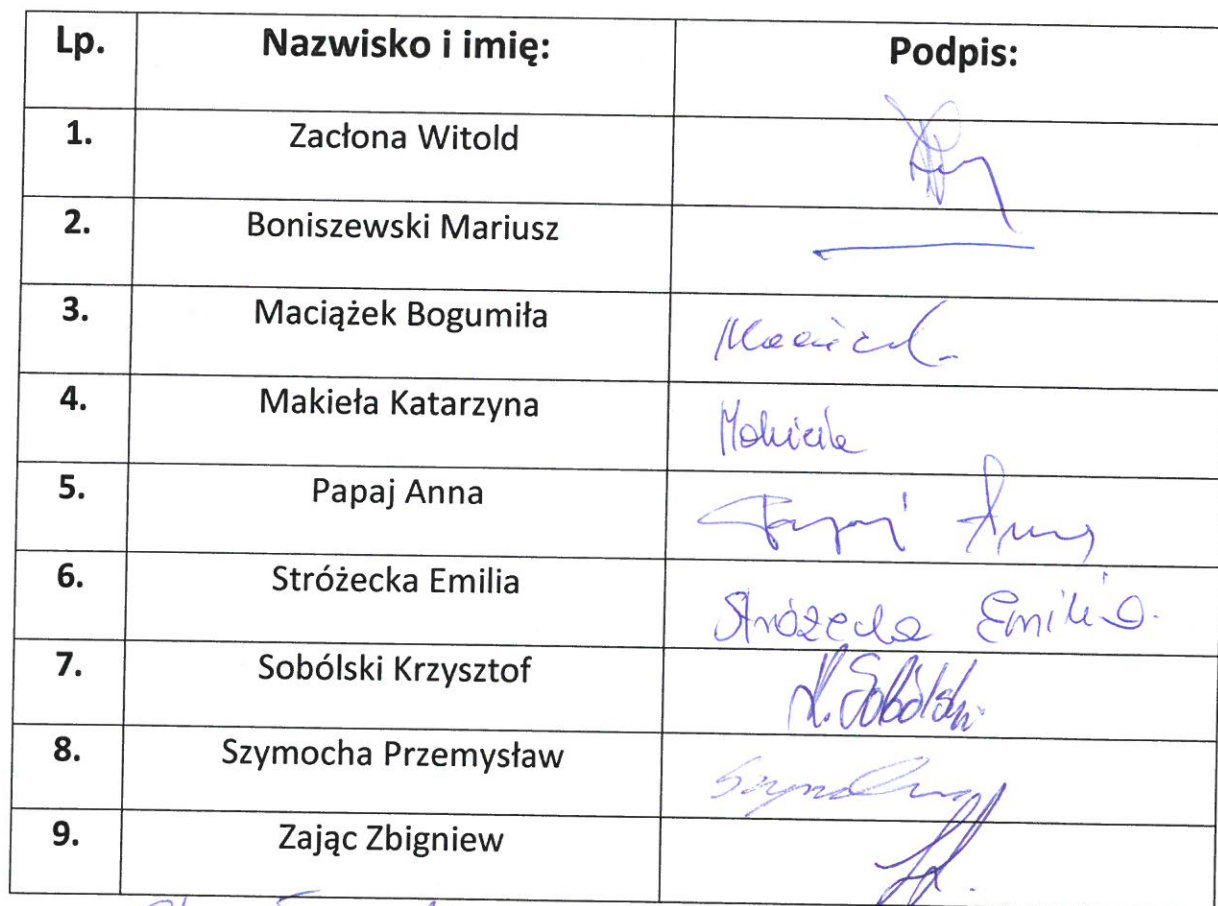 Lp. Nazwisko i imię: Podpis:
1. Zacłona Witold
2. Boniszewski Mariusz
3. Maciążek Bogumiła
4. Makieła Katarzyna Makieła
5. Papaj Anna Papaj Anna
6. Stróżecka Emilia Stróżecka Emilia.
7. Sobólski Krzysztof K. Sobólski
8. Szymocha Przemysław
9. Zając Zbigniew